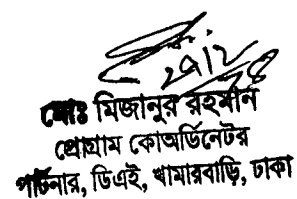 ২৯/২
মোঃ মিজানুর রহমান
প্রোগ্রাম কোঅর্ডিনেটর
পার্টনার, ডিএই, খামারবাড়ি, ঢাকা